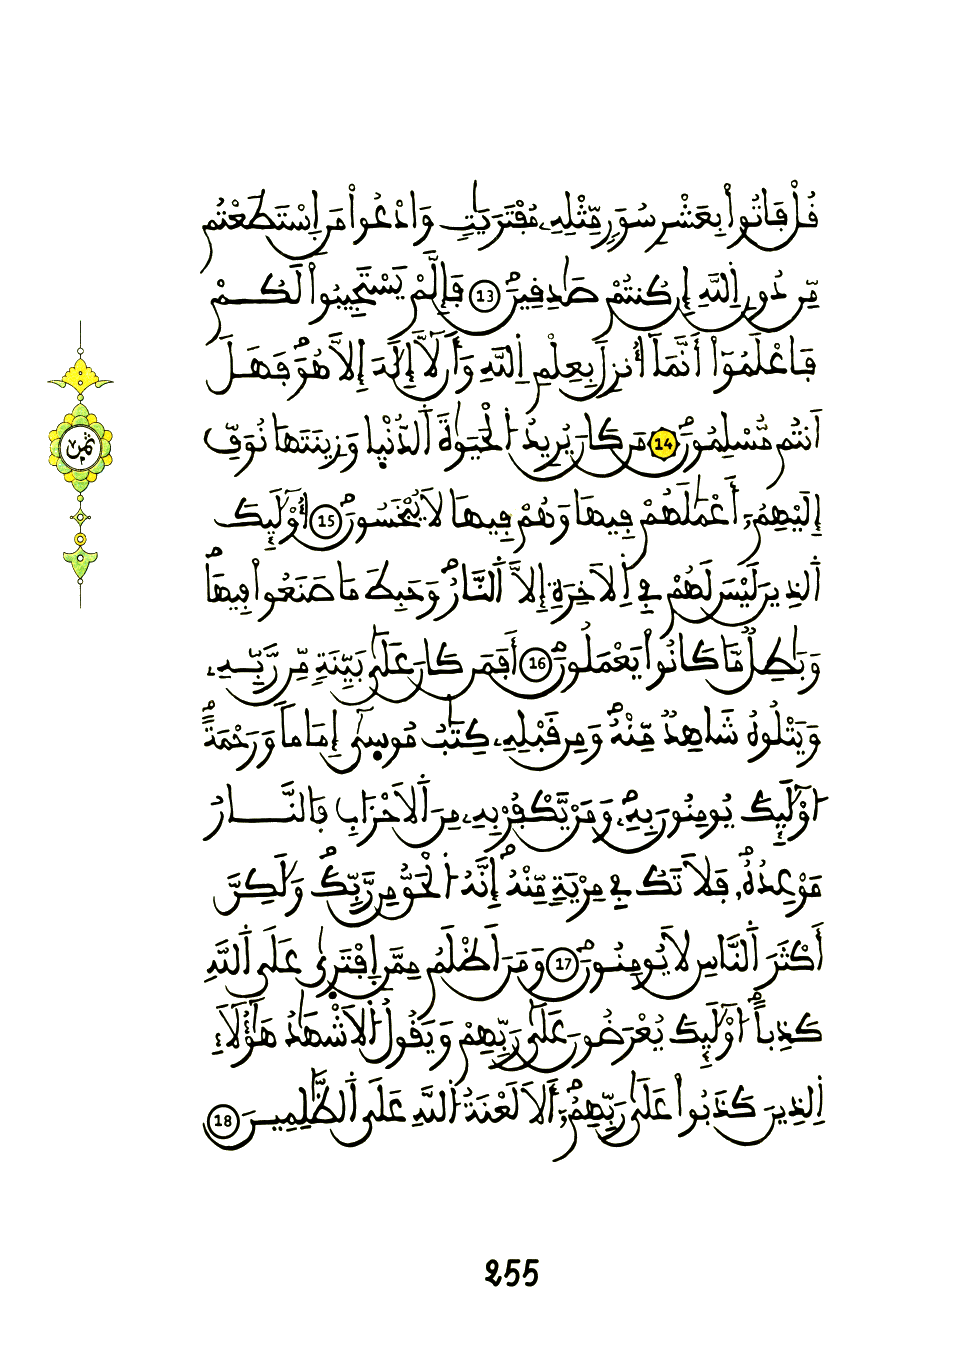 قُلْ فَاتُواْ بِعَشْرِ سُوَرٖ مِّثْلِهِۦ مُفْتَرَيَٰتٖ وَادْعُواْ مَنِ اِسْتَطَعْتُم
مِّن دُونِ اِللَّهِ إِن كُنتُمْ صَٰدِقِينَۖ 13 فَإِلَّمْ يَسْتَجِيبُواْ لَكُمْ
فَاعْلَمُوٓاْ أَنَّمَآ أُنزِلَ بِعِلْمِ اِللَّهِ وَأَن لَّآ إِلَٰهَ إِلَّا هُوَۖ فَهَلْ
أَنتُم مُّسْلِمُونَۖ 14 مَن كَانَ يُرِيدُ اُلْحَيَوٰةَ اَلدُّنْيَا وَزِينَتَهَا نُوَفِّ
إِلَيْهِمُۥٓ أَعْمَٰلَهُمْ فِيهَا وَهُمْ فِيهَا لَا يُبْخَسُونَۖ 15 أُوْلَٰٓئِكَ
اَلذِينَ لَيْسَ لَهُمْ فِے اِلَاخِرَةِ إِلَّا اَلنَّارُۖ وَحَبِطَ مَا صَنَعُواْ فِيهَاۖ
وَبَٰطِلٞ مَّا كَانُواْ يَعْمَلُونَۖ 16 أَفَمَن كَانَ عَلَىٰ بَيِّنَةٖ مِّن رَّبِّهِۦ
وَيَتْلُوهُ شَاهِدٞ مِّنْهُۖ وَمِن قَبْلِهِۦ كِتَٰبُ مُوس۪ىٰٓ إِمَاماٗ وَرَحْمَةًۖ
ا۟وْلَٰٓئِكَ يُومِنُونَ بِهِۦۖ وَمَنْ يَّكْفُرْ بِهِۦ مِنَ اَلَاحْزَابِ فَالنَّارُ
مَوْعِدُهُۥۖ فَلَا تَكُ فِے مِرْيَةٖ مِّنْهُۖ إِنَّهُ اُلْحَقُّ مِن رَّبِّكَۖ وَلَٰكِنَّ
أَكْثَرَ اَلنَّاسِ لَا يُومِنُونَۖ 17 وَمَنَ اَظْلَمُ مِمَّنِ اِفْتَر۪ىٰ عَلَى اَللَّهِ
كَذِباًۖ ا۟وْلَٰٓئِكَ يُعْرَضُونَ عَلَىٰ رَبِّهِمْ وَيَقُولُ اُلَاشْهَٰدُ هَٰٓؤُلَآءِ
اِلذِينَ كَذَبُواْ عَلَىٰ رَبِّهِمُۥٓۖ أَلَا لَعْنَةُ اُللَّهِ عَلَى اَلظَّٰلِمِينَ 18
ثمن
255